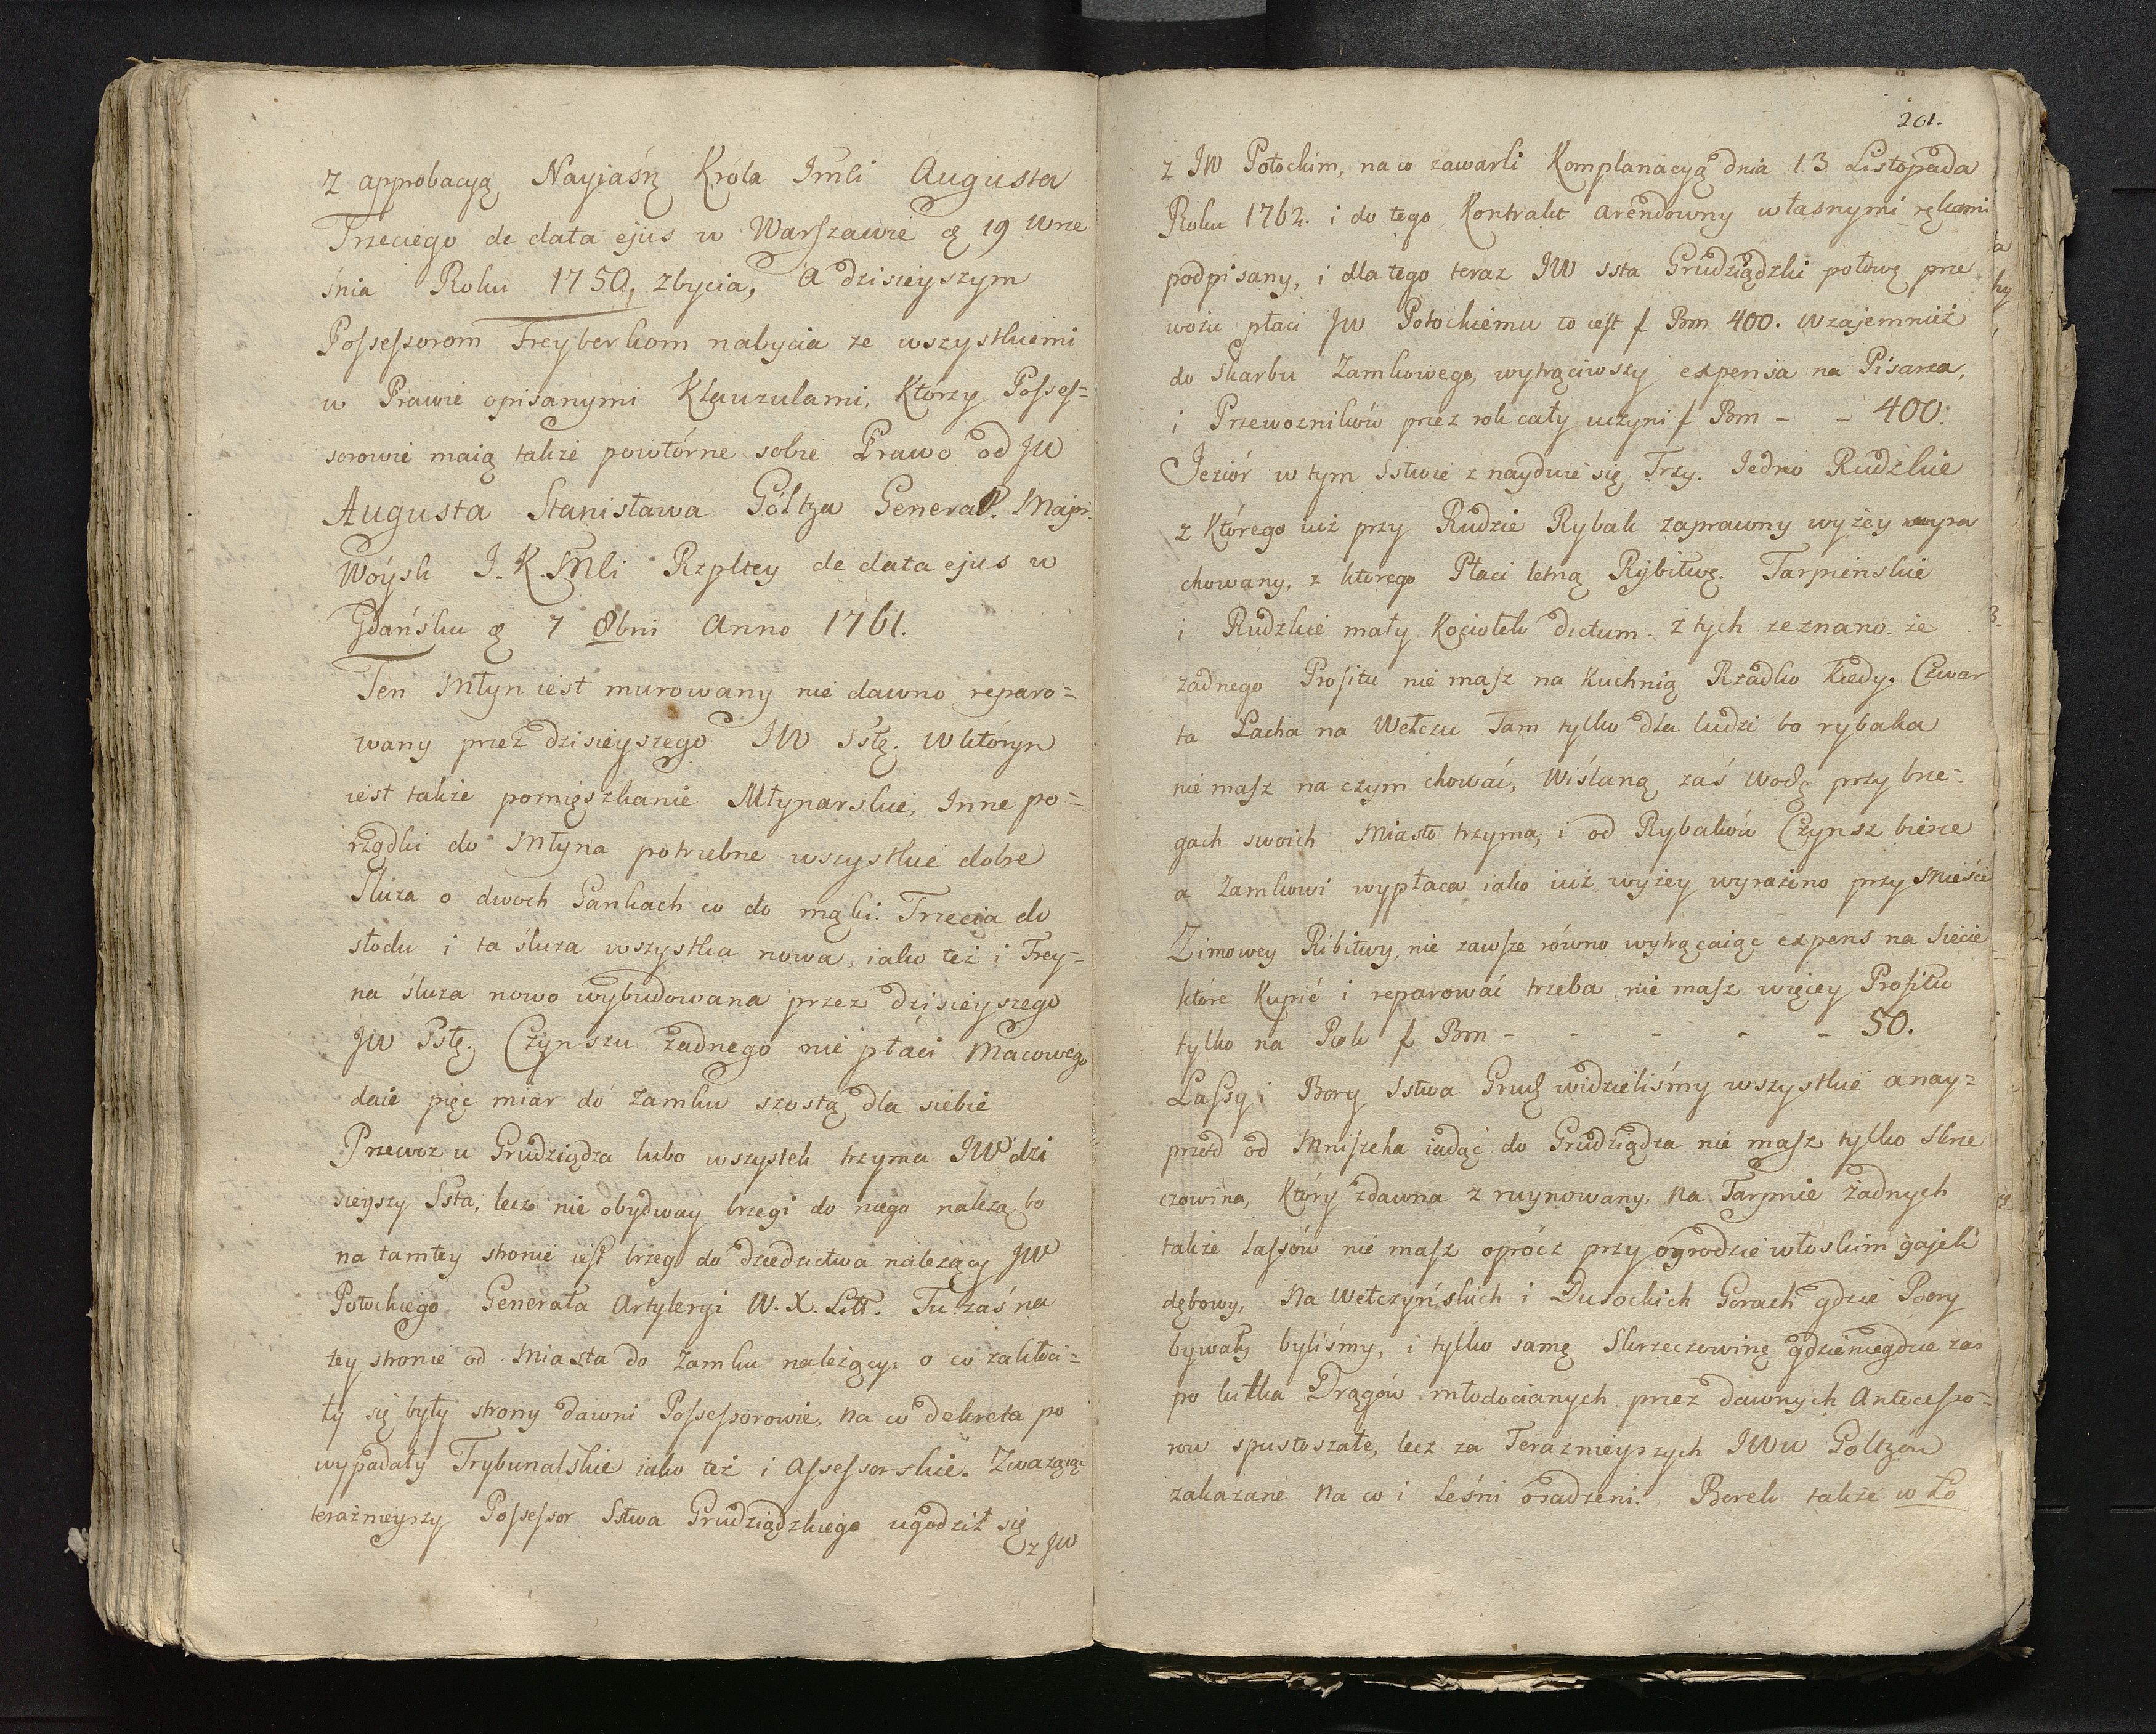 z approbacyą Nayjaśń Króla Jmći Augusta
Trzeciego de data ejus w Warszawie 19 Wrze
śnia Roku 1750, zbycia, a dzisieyszym
Possessorom Freyberkom nabycia ze wszystkiemi
w Prawie opisanymi Klauzulami, Którzy Posses=
sorowie maią także powtórne sobie Prawo od JW
Augusta Stanisława Góltza General. Major
Woysk J. K. Mći Rzpltey de data ejus w
Gdańsku 7 8bris Anno 1761.
Ten Młyn iest murowany nie dawno reparo=
wany przez dzisieyszego JW Sstę. W którym
iest także pomięszkanie Młynarskie, Inne po=
rządki do Młyna potrzebne wszystkie dobre
Sluza o dwoch Gankach co do mąki. Trzecia do
słodu i ta śluza wszystka nowa, iako też i Frey=
na śluza nowo wybudowana przez dzisieyszego
JW Sstę. Czynszu żadnego nie płaci Macowego
daie pięć miar do Zamku szostą dla siebie
Przewoz u Grudziądza lubo wszystek trzyma JW dzi
sieyszy Ssta, lecz nie obydway brzegi do niego należą, bo
na tamtey stronie iest brzeg do dziedzictwa należący JW
Potockiego Generała Artyleryi W. X. Litt. Tu zaś na
tey stronie od Miasta do Zamku należący, o co zakłoci=
ły się były strony dawni Possessorowie, na co dekreta po
wypadały Trybunalskie iako też i Assessorskie. Zwazaiąc
teraźnieyszy Possessor Sstwa Grudziądzkiego ugodził się
z JW
201.
z JW Potockim, na co zawarli Komplanacyą dnia 13 Listopada
Roku 1762. i do tego Kontrakt arendowny własnymi rękami
podpisany, i dla tego teraz JW Ssta Grudziądzki połowę prze
wozu płaci JW Potockiemu to iest f Bm 400. Wzajemnież
do Skarbu Zamkowego, wytrąciwszy expensa na Pisarza,
i Przewozników przez rok cały uczyni f Bm - - 400.
Jezior w tym Sstwie znayduie się Trzy. Jedno Rudzkie
z Którego iuż przy Rudzie Rybak zaprawny wyżey wyra
chowany, z ktorego Płaci letnią Rybitwę. Tarpieńskie
i Rudzkie mały Kociołek dictum. z tych zeznano że
żadnego Profitu nie masz na Kuchnią Rzadko Kiedy. Czwar
ta Łacha na Wełczu Tam tylko dla ludzi bo rybaka
nie masz na czym chować, Wiślaną zaś Wodę przy brze=
gach swoich Miasto trzyma, i od Rybaków Czynsz bierze
a Zamkowi wypłaca iako iuż wyżey wyrażono przy Mieście
Zimowey Ribitwy, nie zawsze równo wytrącaiąc expens na Siecie
które Kupić i reparować trzeba nie masz więcey Profitu
tylko na Rok f Bm - - - - - 50.
Lassy i Bory Sstwa Grudz widzieliśmy wszystkie a nay=
przod od Mniszka iadąc do Grudziądza nie masz tylko Skrze
czowina, Który zdawna zruynowany, na Tarpnie żadnych
także Lassów nie masz oprócz przy ogrodzie włoskim gajek
dębowy, Na Wełczyńskich i Dusockich Gorach gdzie Bory
bywały byliśmy, i tylko samę Skrzeczowinę gdzieniegdzie zas
po kulka Drągów młodocianych przez dawnych Antecesso=
row spustoszałe, lecz za Teraźnieyszych JWW Goltzów
zakazane na co i Leśni osadzeni. Borek także w Ło